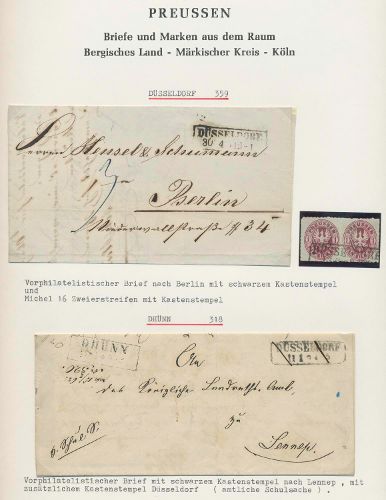 PREUSSEN
Briefe und Marken aus dem Raum
Bergisches Land - Märkischer Kreis - Köln
DÜSSELDORF 359
DÜSSELDORF
30 4
Herren Hensel & Schumann
Berlin
Niederwallstraße # 34
Vorphilatelistischer Brief nach Berlin mit schwarzem Kastenstempel
und
Michel 16 Zweierstreifen mit Kastenstempel
DHÜNN 318
DHÜNN
DÜSSELDORF
An
das Königliche Landraths Amt
zu
Lennep
Vorphilatelistischer Brief mit schwarzem Kastenstempel nach Lennep , mit
zusätzlichem Kastenstempel Düsseldorf ( amtliche Schulsache ) .